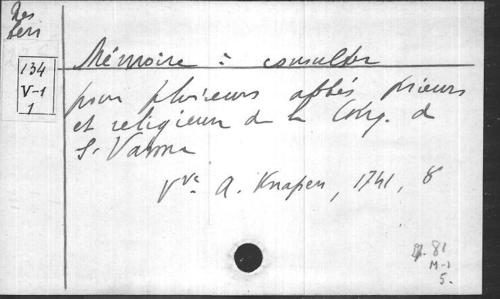 Res
134
V-1
1
Mémoire à consulter
pour plusieurs abbés prieurs
et religieux de la Cong. de
S. Vanne
Vve A. Knapen, 1741, 8
81
M-1
5.